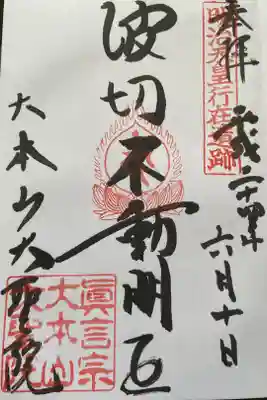 奉拝
明治天皇行在遺跡
平成二十四年六月十日
波切不動明王
大本山大聖院
真言宗
大本山
大聖院